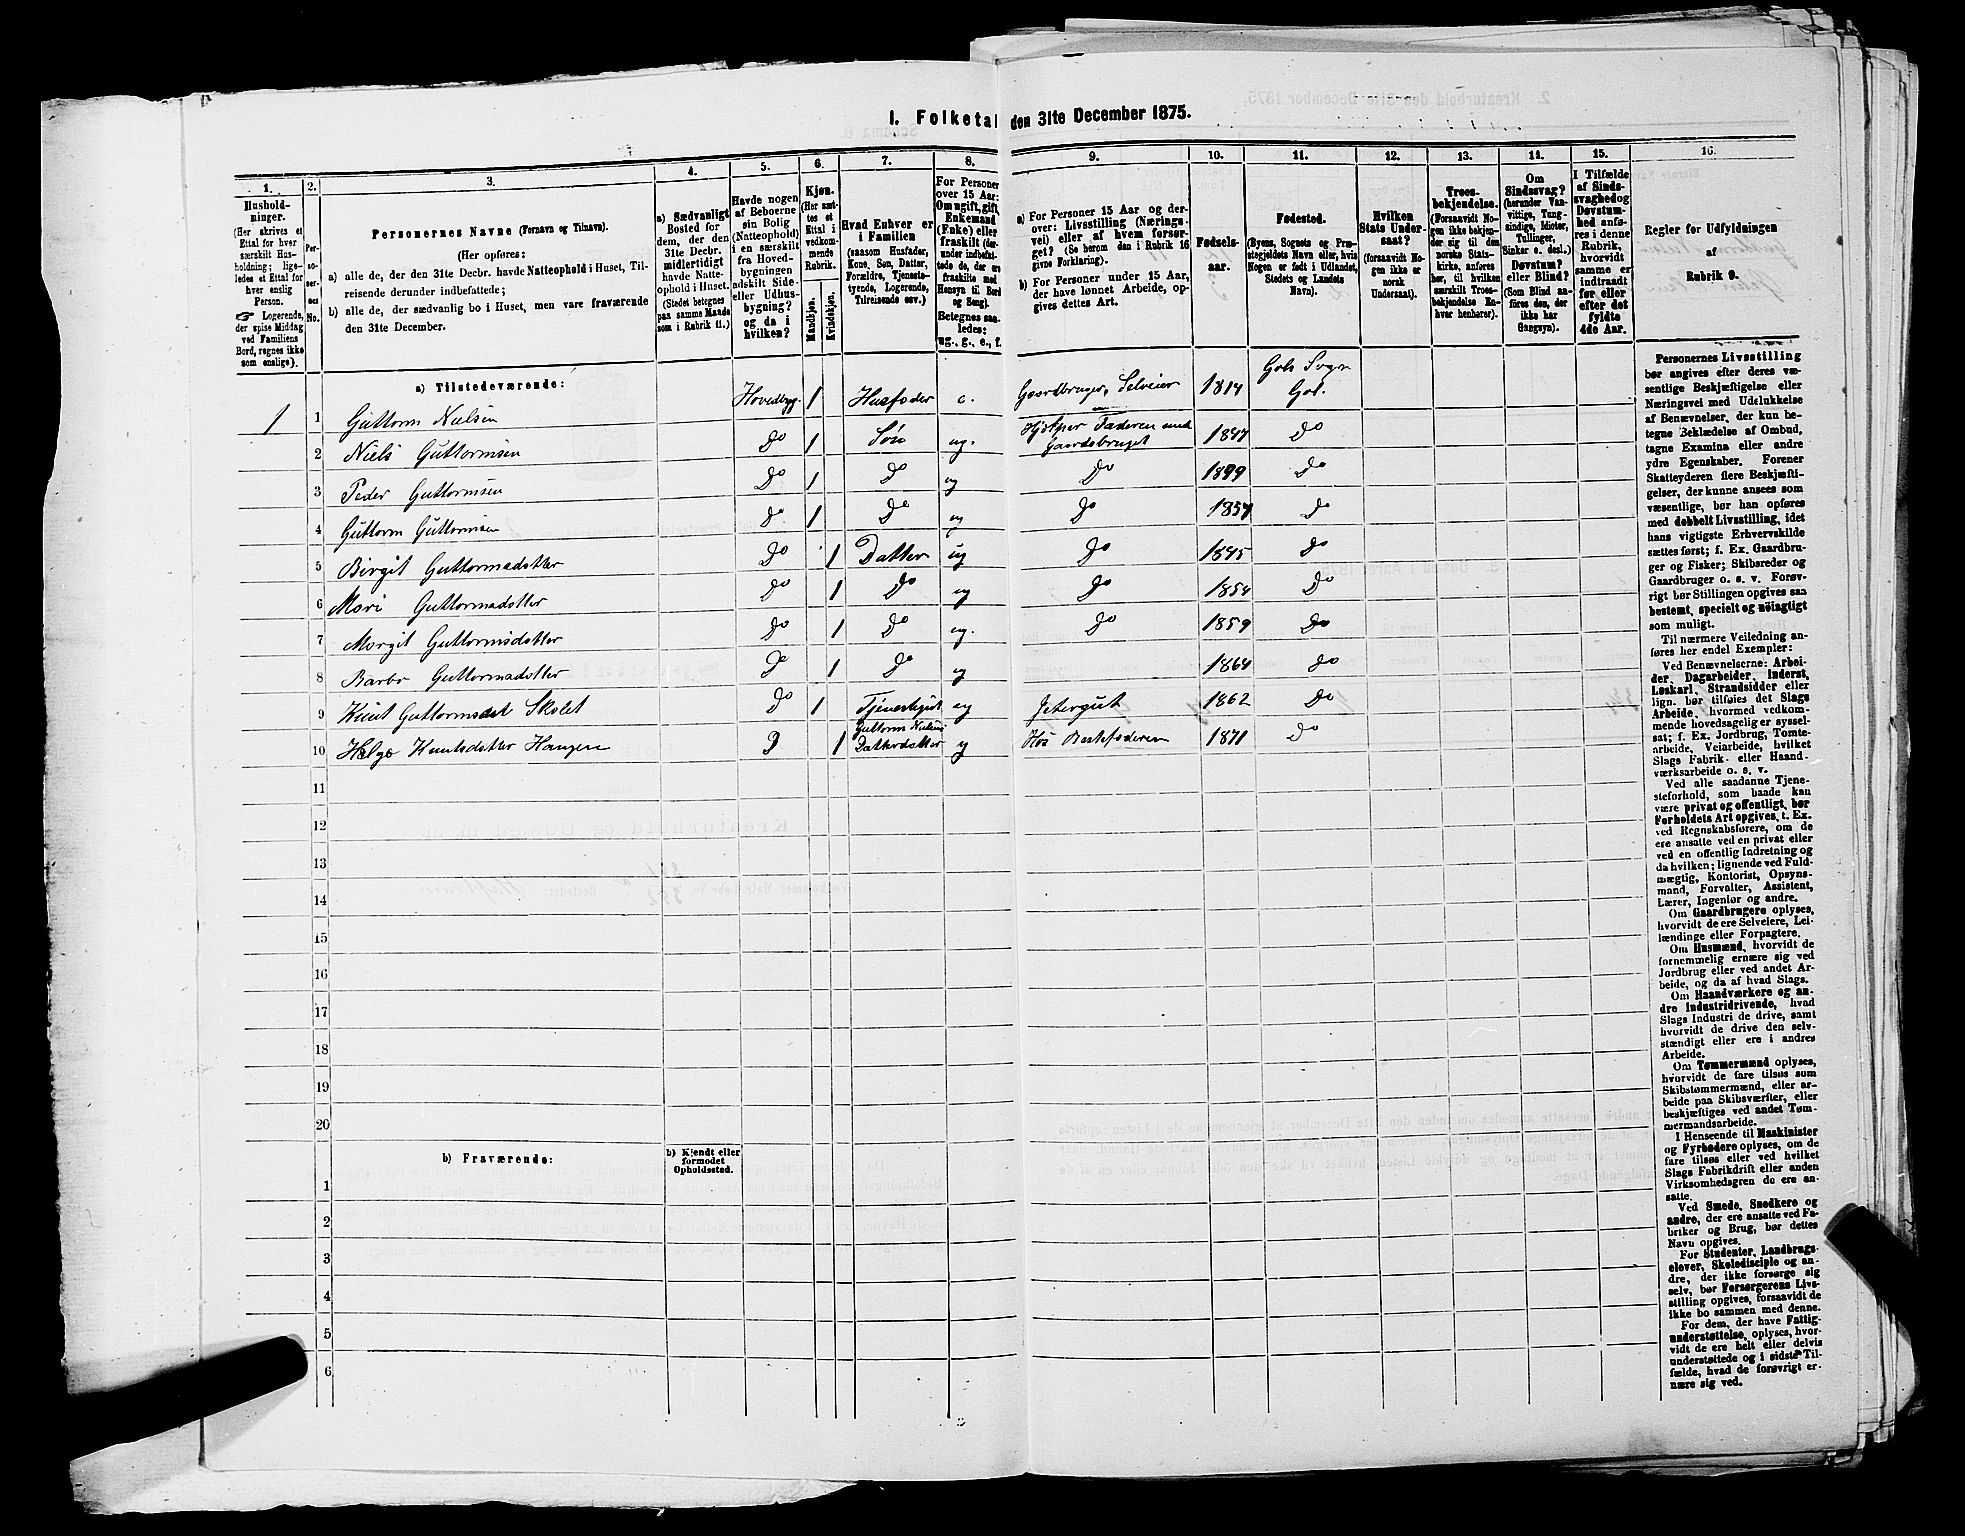 I. Folketal den 31te December 1875.
1. 2. 3. 4. 5. 6. 7. 8. 9. 10. 11. 12. 13. 14. 15. 16.
Husholdninger.
(Her skrives et Ettal for hver særskilt Husholdning; ligeledes et Ettal for hver enslig Person.
☞ Logerende, der spise Middag ved Familiens Bord, regnes ikke som enslige).
Personernes No.
Personernes Navne (Fornavn og Tilnavn).
(Her opføres:
a) alle de, der den 31te Decbr. havde Natteophold i Huset, Tilreisende derunder indbefattede;
b) alle de, der sædvanlig bo i Huset, men vare fraværende den 31te December.
a) Sædvanligt Bosted for dem, der den 31te Decbr. midlertidigt havde Natteophold i Huset.
(Stedet betegnes paa samme Maade som i Rubrik 11.)
Havde nogen af Beboerne sin Bolig (Natteophold) i en særskilt fra Hovedbygningen adskilt Side- eller Udhusbygning? og da i hvilken?
Kjøn.
(Her sættes et Ettal i vedkommende Rubrik.
Mandkjøn.
Kvindekjøn.
Hvad Enhver er i Familien
(saasom Husfader, Kone, Søn, Datter, Forældre, Tjenestetyende, Logerende, Tilreisende osv.)
For Personer over 15 Aar: Om ugift, gift, Enkemand (Enke) eller fraskilt
Betegnes saaledes: ug., g., e., f.
a) For Personer 15 Aar og derover: Livsstilling (Næringsvei) eller af hvem forsørget? (Se herom den i Rubrik 16 givne Forklaring).
b) For Personer under 15 Aar, der have lønnet Arbeide, opgives dettes Art.
Fødselsaar.
Fødested.
(Byens, Sognets og Præstegjeldets Navn eller, hvis Nogen er født i Udlandet, Stedets og Landets Navn).
Hvilken Stats Undersaat?
(forsaavidt Nogen ikke er norsk Undersaat).
Troesbekjendelse.
(Forsaavidt Nogen ikke bekjender sig til den norske Statskirke, anføres her, til hvilken særskilt Troesbekjendelse Enhver henhører).
Om Sindssvag? (herunder Vanvittige, Tungsindige, Idioter, Tullinger, Sinker o. desl.) Døvstum? eller Blind? (Som Blind anføres den, der ikke har Gangsyn).
I Tilfælde af Sindssvaghed og Døvstumhed anføres i denne Rubrik, hvorvidt samme er indtraadt før eller efter det fyldte 4de Aar.
Regler for Udfyldningen af Rubrik 9.
a) Tilstedeværende:
1 1 Guttorm Nielsen Hovedbyg. 1 Husfader e. Gaardbruger, Selveier 1814 Gols Sogn Gol.
2 Niels Guttormsen Do 1 Søn ug. Hjelper Faderen med Gaardsbruget 1847 Do
3 Peder Guttormsen Do 1 Do ug Do 1849 Do
4 Guttorm Guttormsen Do 1 Do ug Do 1857 Do
5 Birgit Guttormsdatter Do 1 Datter ug Do 1845 Do
6 Mari Guttormsdatter Do 1 Do ug Do 1854 Do
7 Margit Guttormsdatter Do 1 Do ug. Do 1859 Do
8 Barbo Guttormsdatter Do 1 Do ug 1864 Do
9 Knut Guttormsen Skolet Do 1 Tjenestegut ug Jetergut 1862 Do
10 Helge Knutsdatter Haugen D 1 Guttorm Nielsens Datterdatter ug Hos Bestefaderen 1871 Do
11
12
13
14
15
16
17
18
19
20
b) Fraværende:
b) Kjendt eller formodet Opholdssted.
1
2
3
4
5
6
Personernes Livsstilling bør angives efter deres væsentlige Beskjæftigelse eller Næringsvei med Udelukkelse af Benævnelser, der kun betegne Beklædelse af Ombud, tagne Examina eller andre ydre Egenskaber. Forener Skatteyderen flere Beskjæftigelser, der kunne ansees som væsentlige, bør han opføres med dobbelt Livsstilling, idet hans vigtigste Erhvervskilde sættes først; f. Ex. Gaardbruger og Fisker; Skibsreder og Gaardbruger o. s. v. Forøvrigt bør Stillingen opgives saa bestemt, specielt og nøiagtigt som muligt.
Til nærmere Veiledning anføres her endel Exempler:
Ved Benævnelserne: Arbeider, Dagarbeider, Inderst, Løskarl, Strandsidder eller lign. bør tilføies det Slags Arbeide, hvormed vedkommende hovedsagelig er sysselsat; f. Ex. Jordbrug, Tomtearbeide, Veiarbeide, hvilket Slags Fabrik- eller Haandværksarbeide o. s. v.
Ved alle saadanne Tjenesteforhold, som baade kan være privat og offentligt, bør Forholdets Art opgives, t. Ex. ved Regnskabsførere, om de ere ansatte ved en privat eller ved en offentlig Indretning og da hvilken; lignende ved Fuldmægtig, Kontorist, Opsynsmand, Forvalter, Assistent, Lærer, Ingeniør og andre.
Om Gaardbrugere oplyses, hvorvidt de ere Selveiere, Leilændinge eller Forpagtere.
Om Husmænd, hvorvidt de fornemmelig ernære sig ved Jordbrug eller ved andet Arbeide, og da af hvad Slags.
Om Haandværkere og andre Industridrivende, hvad Slags Industri de drive, samt hvorvidt de drive den selvstændigt eller ere i andres Arbeide.
Om Tømmermænd oplyses, hvorvidt de fare tilsøs som Skibstømmermænd, eller arbeide paa Skibsværfter, eller beskjæftiges ved andet Tømmermandsarbeide.
I Henseende til Maskinister og Fyrbødere oplyses, om de fare tilsøs eller ved hvilket Slags Fabrikdrift eller anden Virksomhedsgren de ere ansatte.
Ved Smede, Snedkere og andre, der ere ansatte ved Fabriker og Brug, bør dettes Navn opgives.
For Studenter, Landbrugselever, Skoledisciple og andre, der ikke forsørge sig selv, bør Forsørgerens Livsstilling opgives, forsaavidt de ikke bo sammen med denne.
For dem, der have Fattigunderstøttelse, oplyses, hvorvidt de ere helt eller delvis understøttede og i sidste Tilfælde, hvad de forøvrigt ernære sig ved.